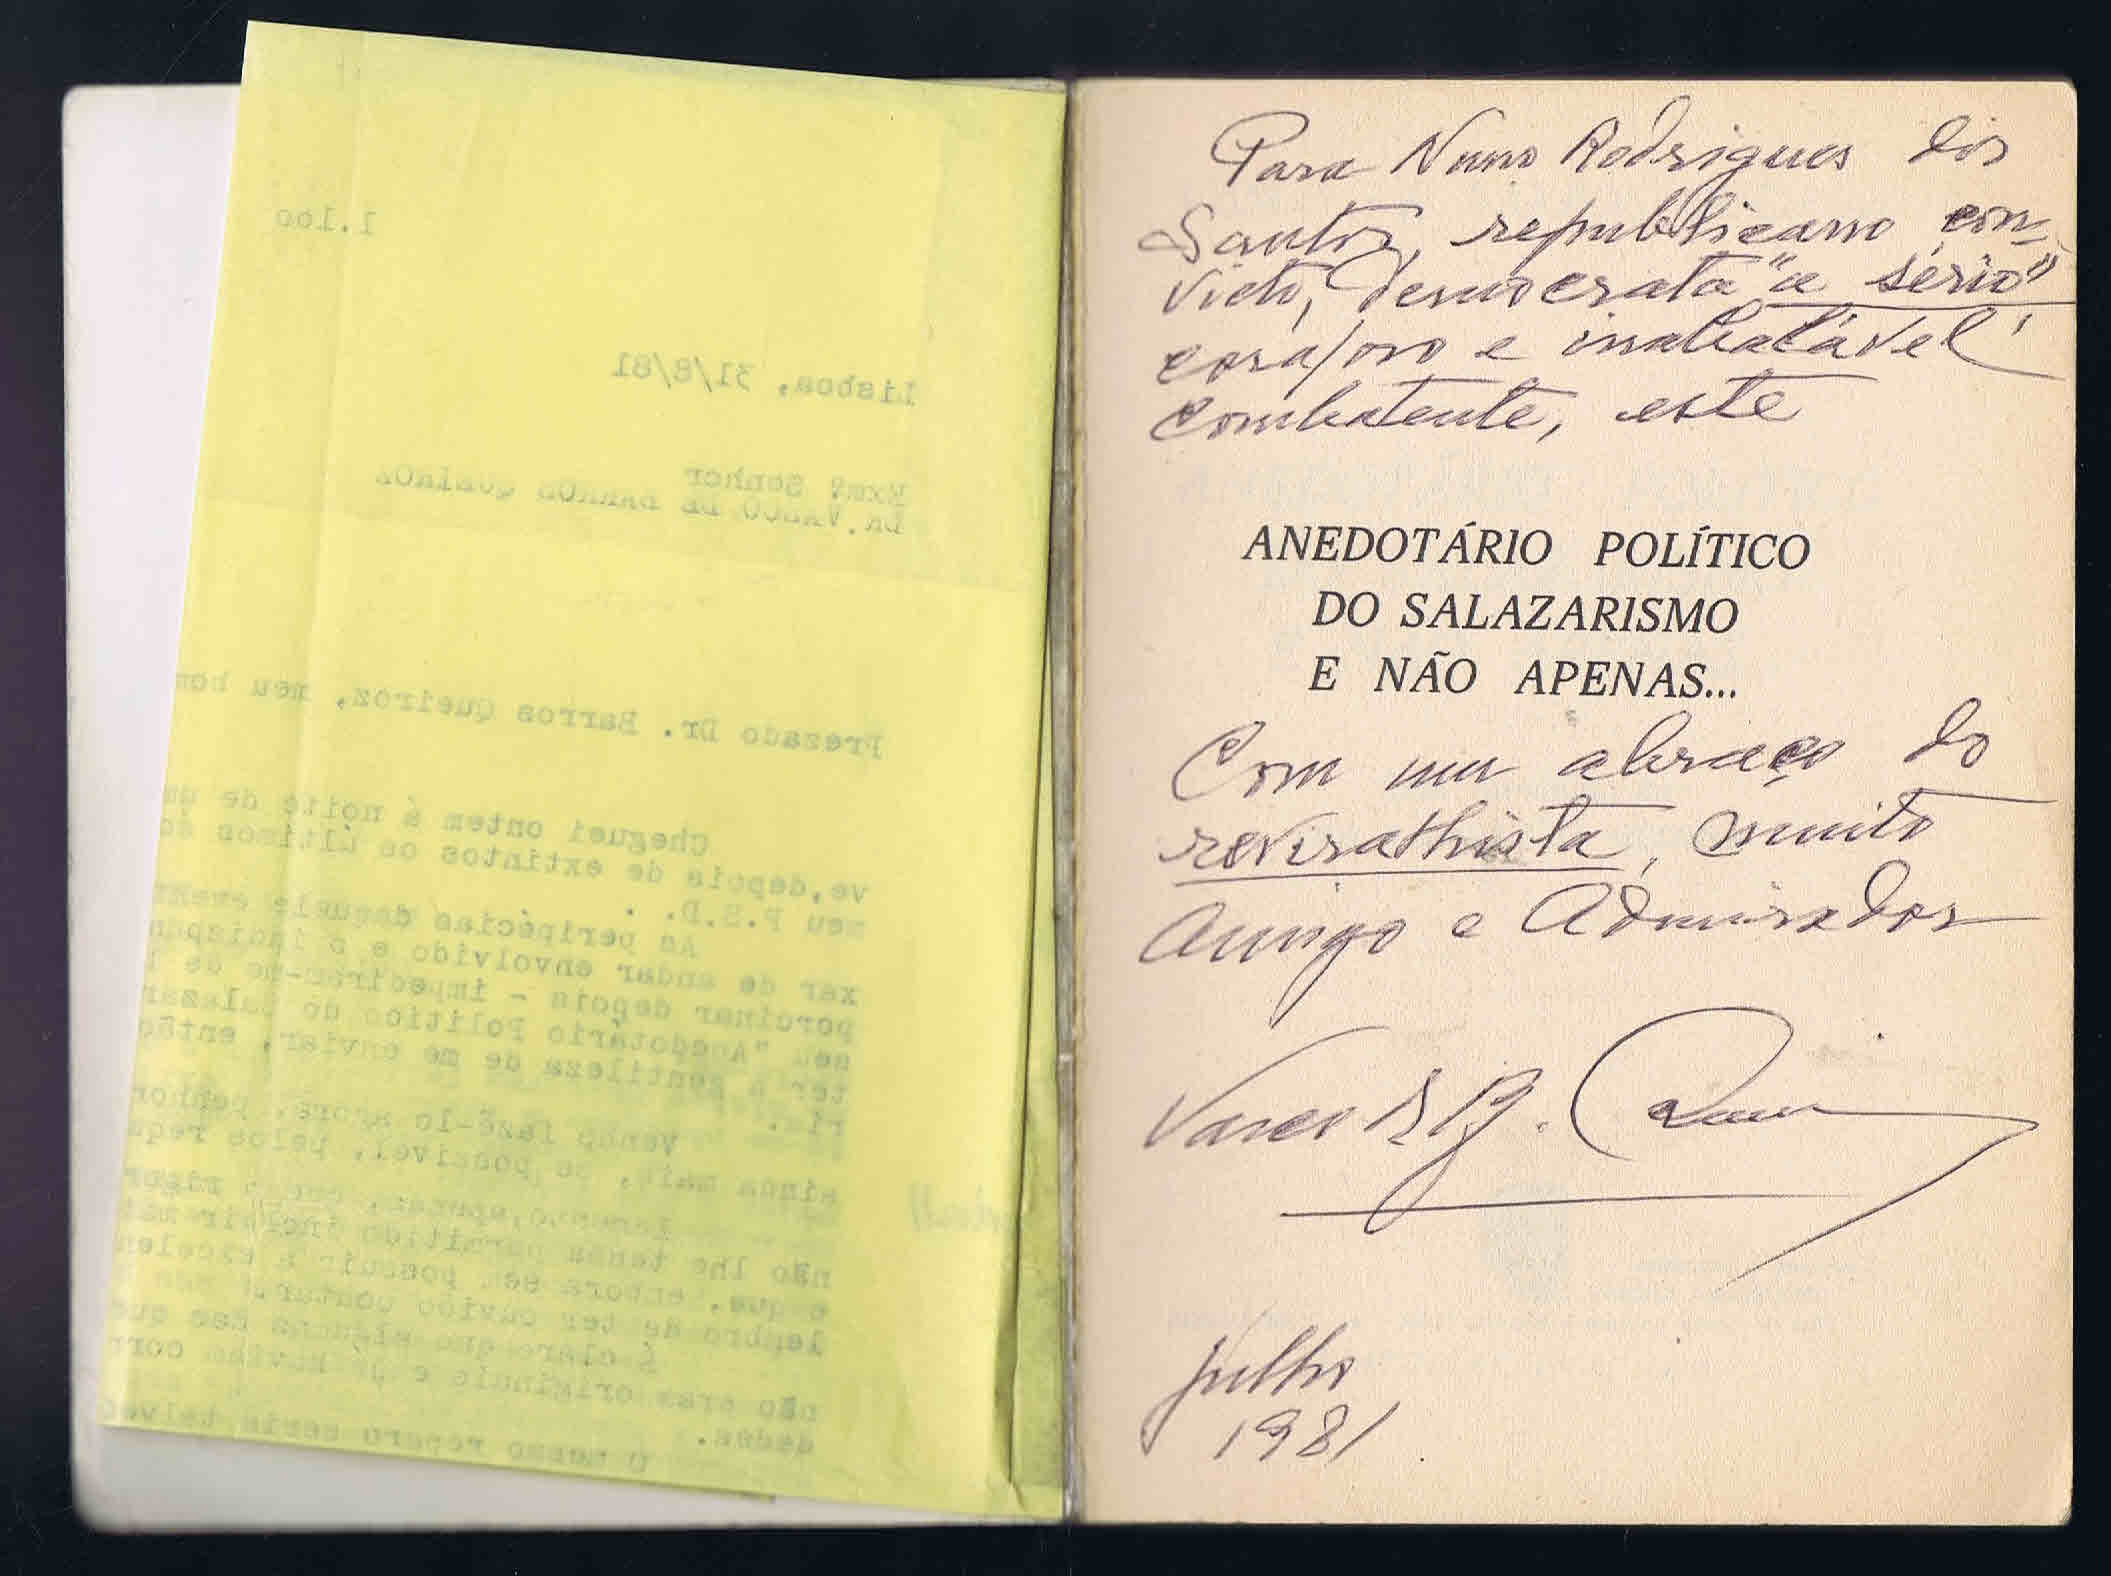 1.100
Lisboa, 31/8/81
Exmº Senhor
Dr. VASCO DE BARROS QUEIROZ
Prezado Dr. Barros Queiroz, meu bom
Cheguei ontem á noite de um
ve, depois de extintos os últimos
meu P.S.D. .
As peripécias daquele
xar de andar envolvido e o
porcinar depois - impediram-me de
seu "Anedotário Político do Salazar
ter a gentileza de me enviar, então
ria.
Venho fazê-lo agora, penhor
ainda mais, se possível, pelos
Lamento, apenas, que o rigor
não lhe tenha permitido incluir mai
e que, embora sem possuir a excelen
lembro de ter ouvido contar.
É claro que algumas das que
não eram originais e já haviam corr
dadas.
O mesmo reparo seria talvez
Para Nuno Rodrigues dos
Santos, republicano con-
victo, democrata "a sério"
corajoso e inabalável
combatente, este
ANEDOTÁRIO POLÍTICO
DO SALAZARISMO
E NÃO APENAS...
Com um abraço do
revirathista, muito
Amigo e Admirador
Vasco de B. Queiroz
Julho
1981